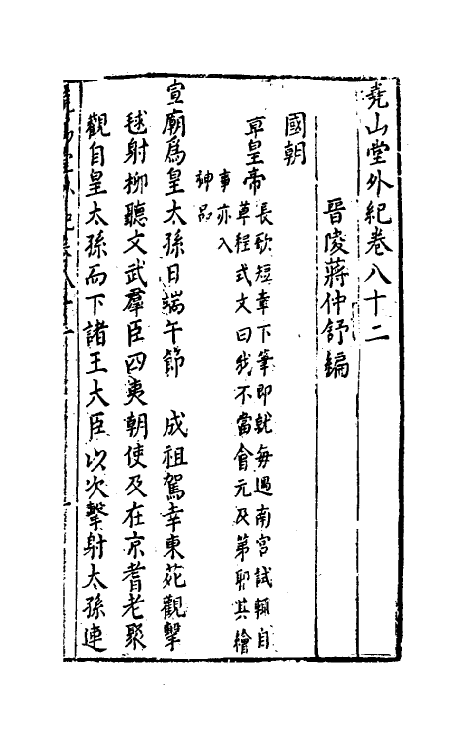 堯山堂外紀卷八十二
晉陵蔣仲舒編
國朝
章皇帝長歌短章下筆即就每遇南宮試輒自
草程式文曰我不當會元及第耶其繪
事亦入
神品
宣廟為皇太孫日端午節　成祖駕幸東苑觀擊
毬射柳聽文武羣臣四夷朝使及在京耆老聚
觀自皇太孫而下諸王大臣以次擊射太孫連